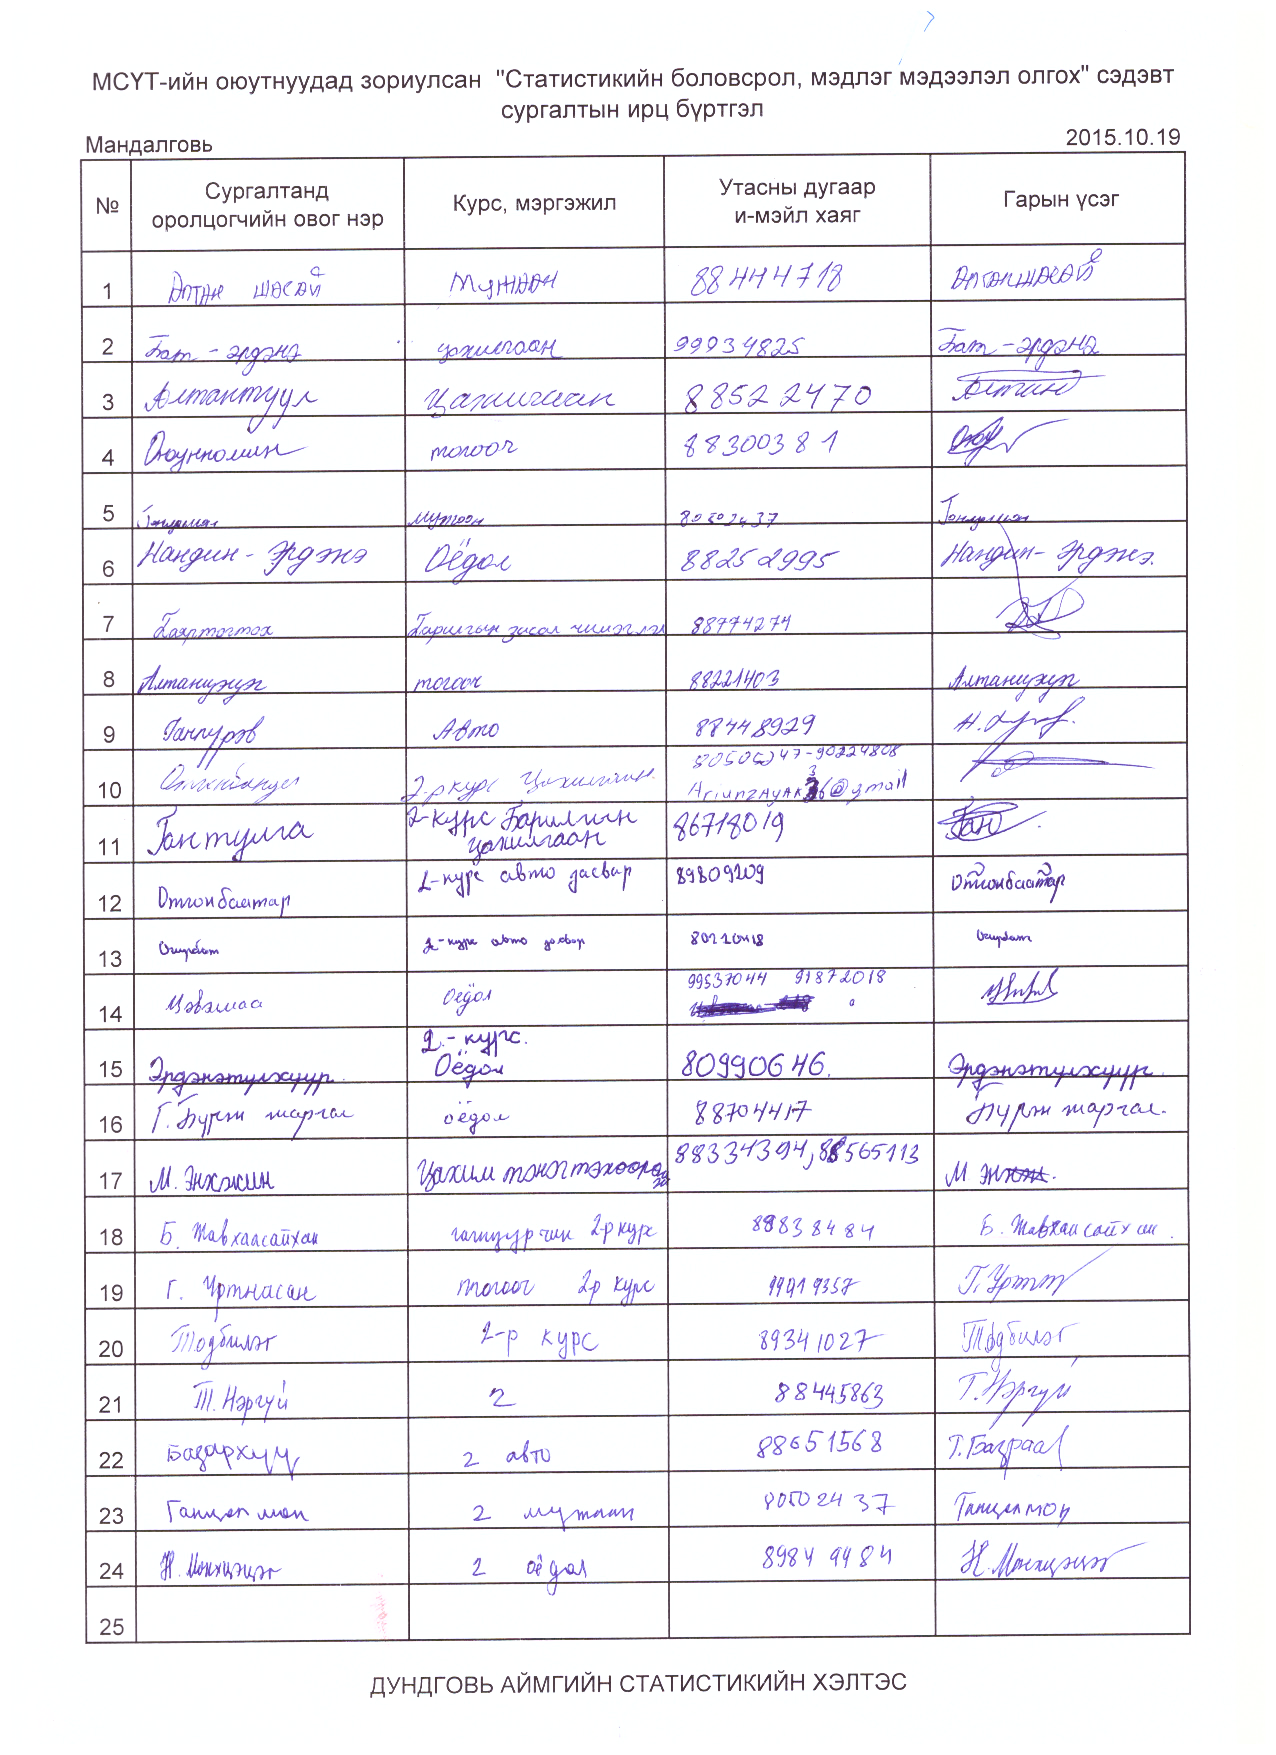 МСҮТ-ийн оюутнуудад зориулсан "Статистикийн боловсрол, мэдлэг мэдээлэл олгох" сэдэвт
сургалтын ирц бүртгэл
Мандалговь 2015.10.19
№ Сургалтанд оролцогчийн овог нэр Курс, мэргэжил Утасны дугаар и-мэйл хаяг Гарын үсэг
1 Алтан шагай Мужаан 88444718
2 Бат-эрдэнэ цахилгаан 99934825 Бат-эрдэнэ
3 Алтантуул Цахилгаан 88522470
4 Оюунномин тогооч 88300381
5
6 Нандин-Эрдэнэ Оёдол 88252995 Нандин-Эрдэнэ.
7 Баяртогтох Барилгын засал чимэглэл 88774274
8 Алтанцэцэг тогооч 88221403
9 Ганпүрэв Авто 88448929
10 2-р курс Цахилгаан.
11 Гантулга 2-курс Барилгын цахилгаан 86718019 Ган
12 Отгонбаатар 2-курс авто засвар 89809209 Отгонбаатар
13 Очирбат 2-курс авто засвар Очирбат
14 Цэвэлмаа Оёдол 99537044 91872018
15 Эрдэнэтулхуур. 2-курс. Оёдол 80990646. Эрдэнэтулхуур.
16 Г. Бүрэнжаргал оёдол 88704417 Бүрэнжаргал.
17 М. Энхжин 88334394, 88565113
18 Б. Жавхласайхан гагнуурчин 2р курс 89838484 Б. Жавхлансайхан.
19 Г. Уртнасан тогооч 2р курс 99919357
20 Тодбилэг 2-р курс 89341027 Тодбилэг
21 Т. Нэргүй 2 88445863 Т. Нэргүй
22 Базархүү 2 авто 88651568
23 Ганцэцлмөн 2 мужаан 80502437
24 Н. Мөнхцэцэг 2 оёдол 89849984 Н. Мөнхцэцэг
25
ДУНДГОВЬ АЙМГИЙН СТАТИСТИКИЙН ХЭЛТЭС